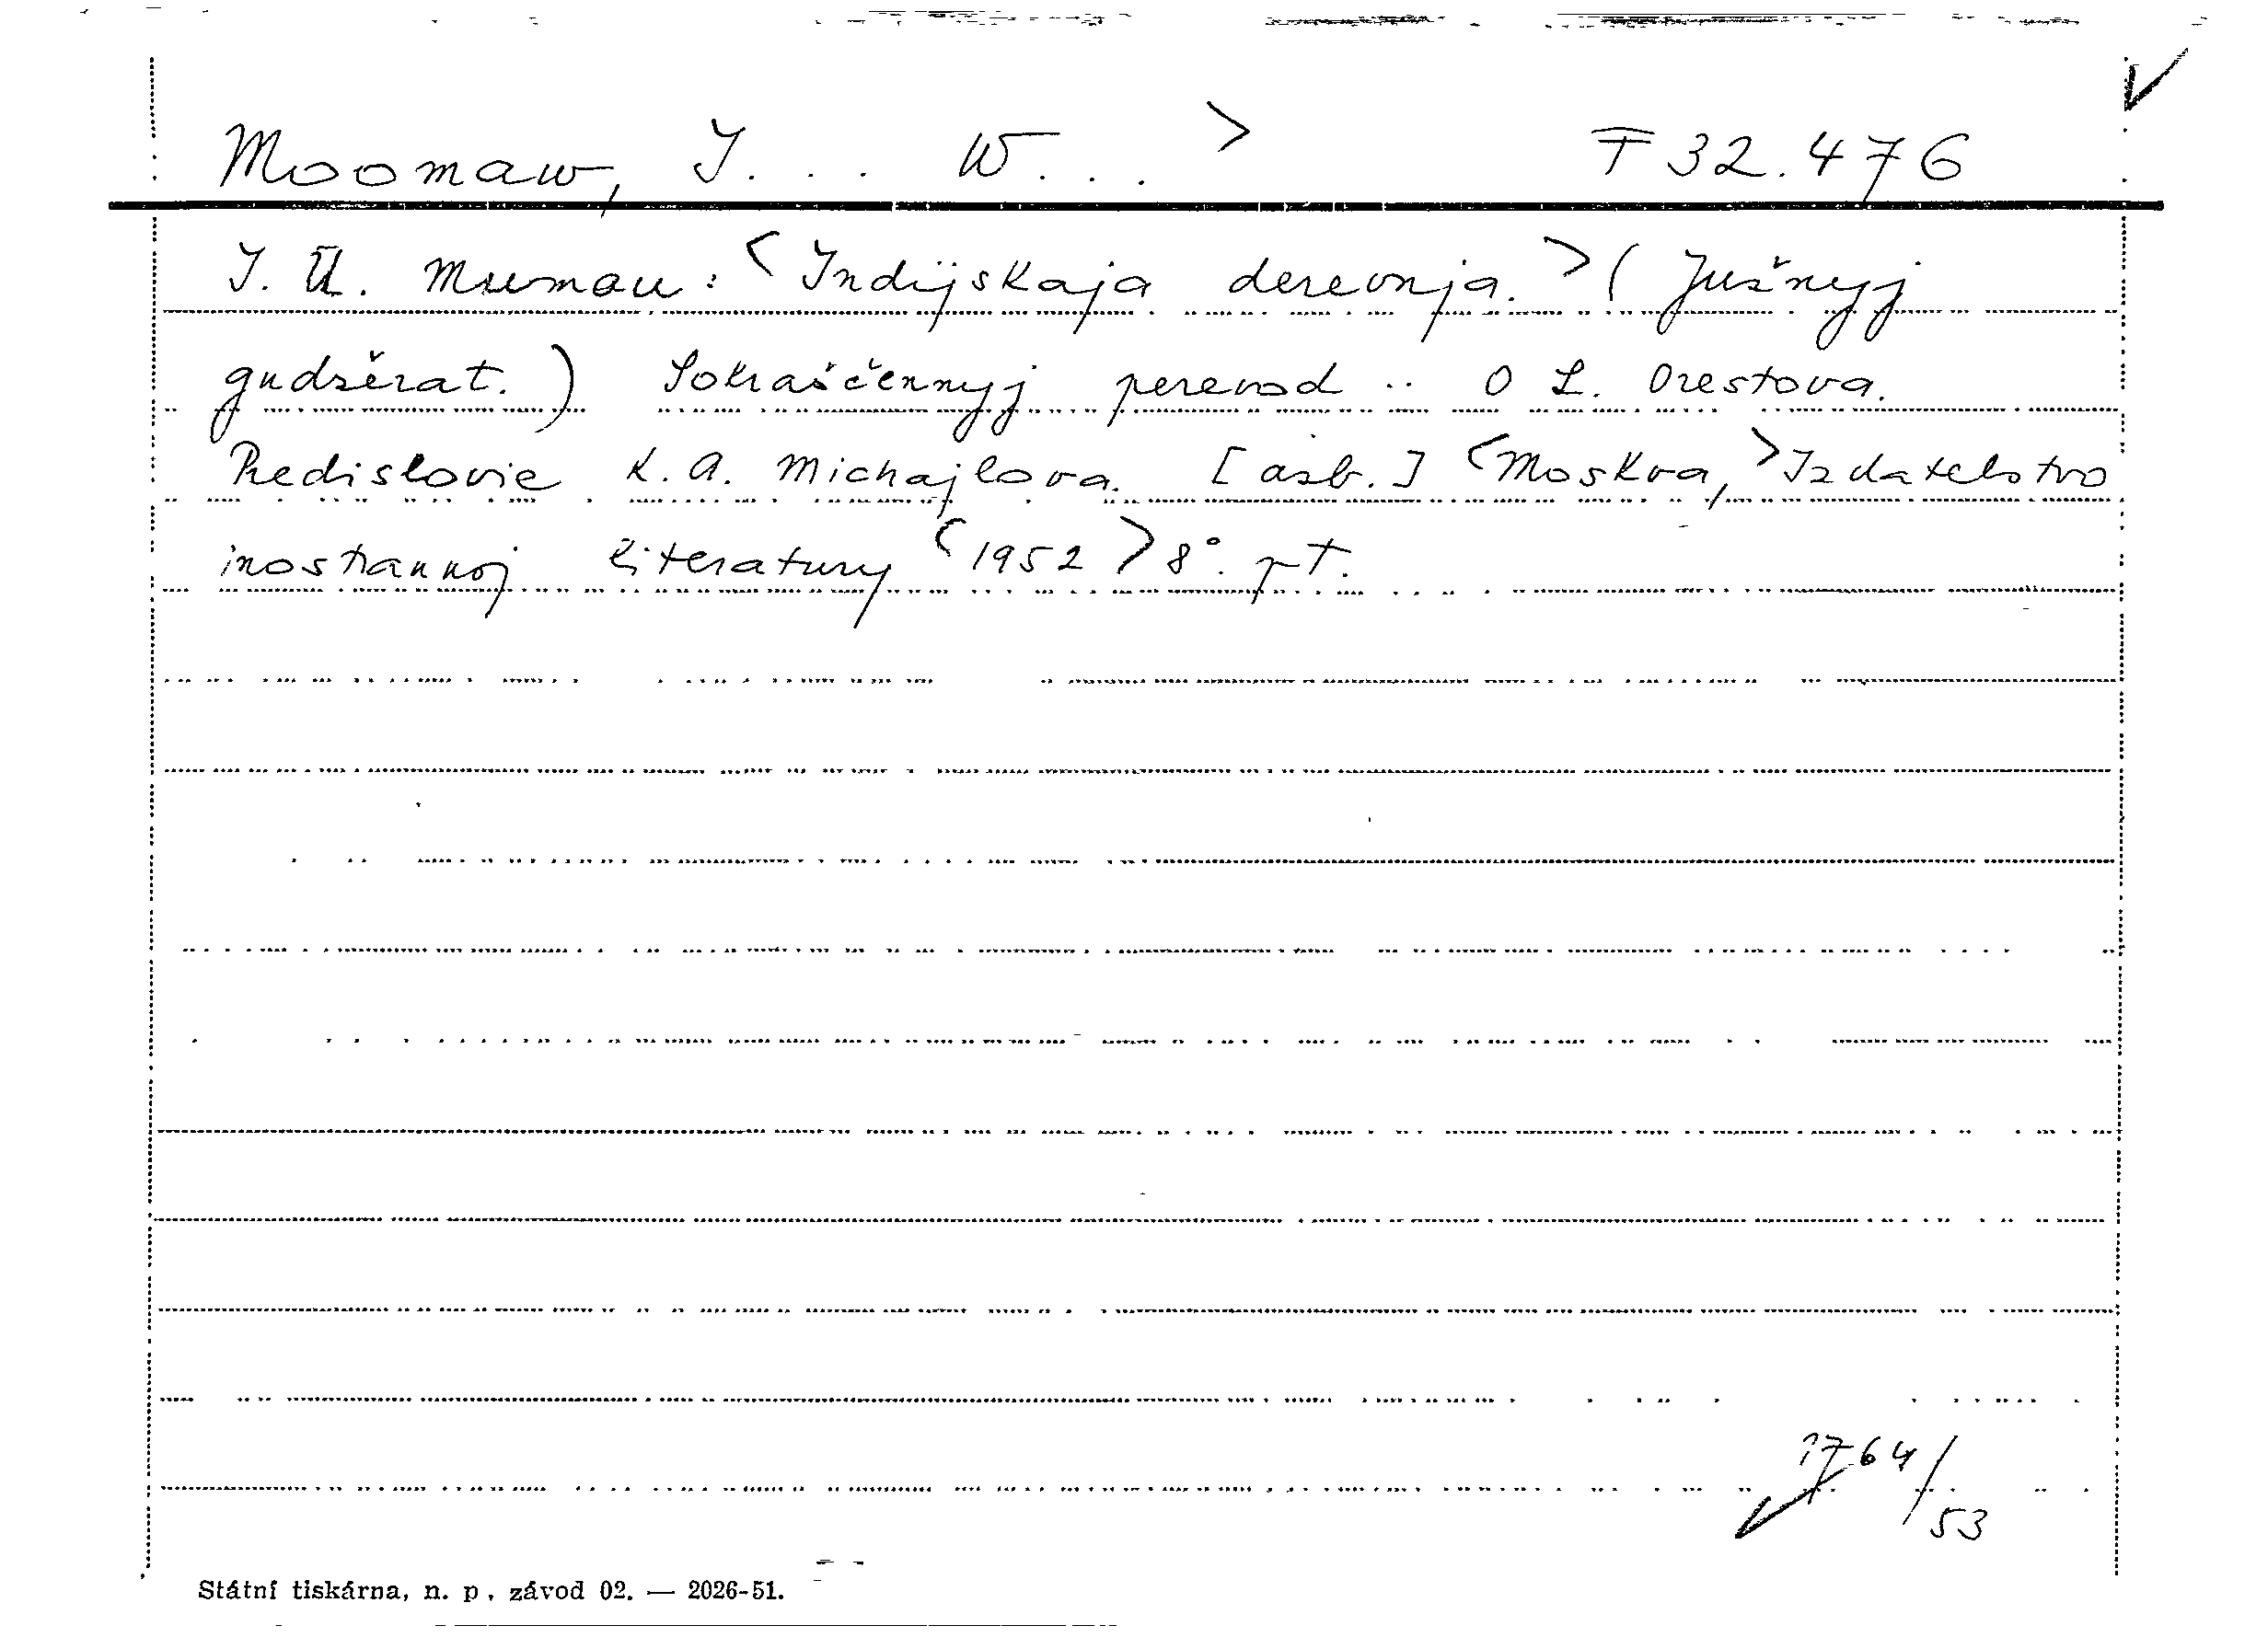 Moomaw, I... W... > F 32.476
I. Ū. Mumau: <Indijskaja derevnja.> (Južnyj
gudžěrat.) Sokraščennyj perevod .. O L. Orestova.
Predislovie K. A. Michajlova. [asb.] <Moskva,> Izdatelstvo
inostrannoj literatury <1952> 8°. pT.
1764/53
Státní tiskárna, n. p., závod 02. — 2026-51.